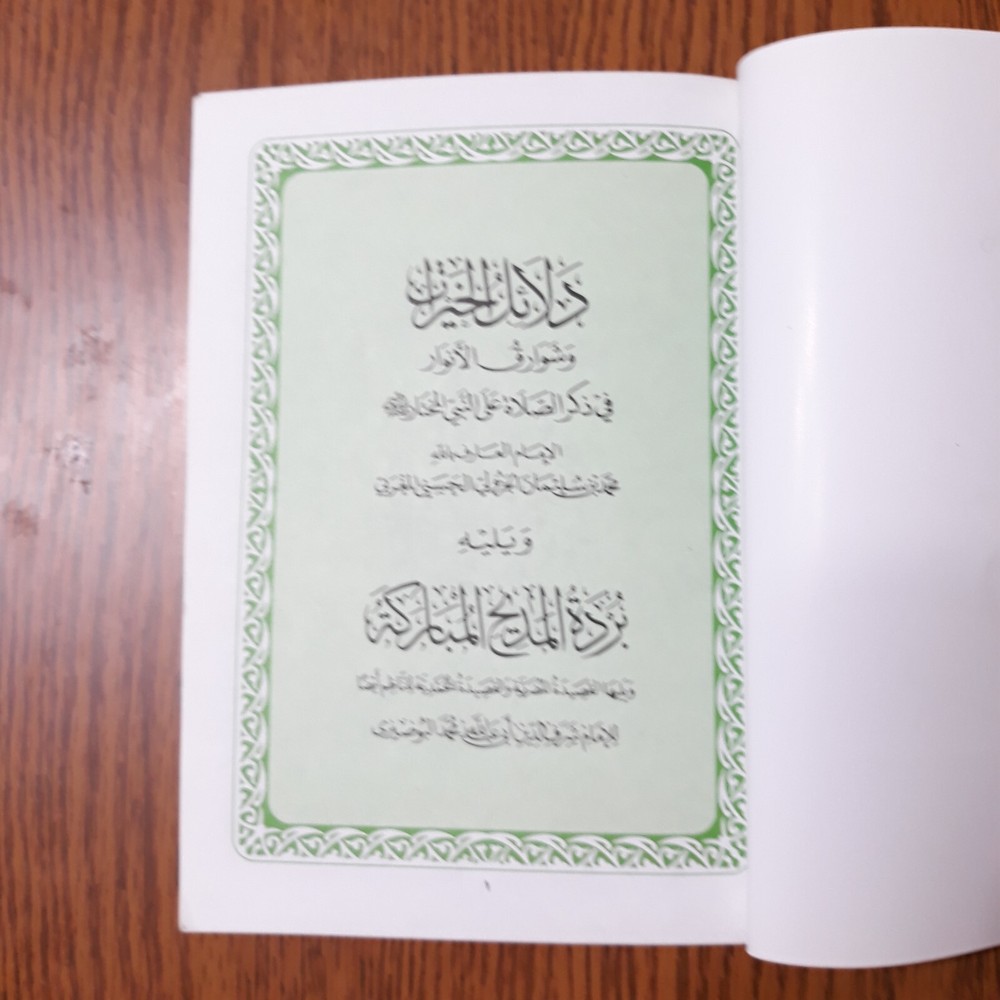 دلائل الخيرات
وشوارق الأنوار
في ذكر الصلاة على النبي المختار ﷺ
الإمام العارف بالله
محمد بن سليمان الجزولي الحسني المغربي
ويليه
بُرْدَةُ المَدِيحِ المُبَارَكَة
ويليها القصيدة المضرية والقصيدة المحمدية للناظم أيضا
للإمام شرف الدين أبي عبد الله محمد البوصيري
١